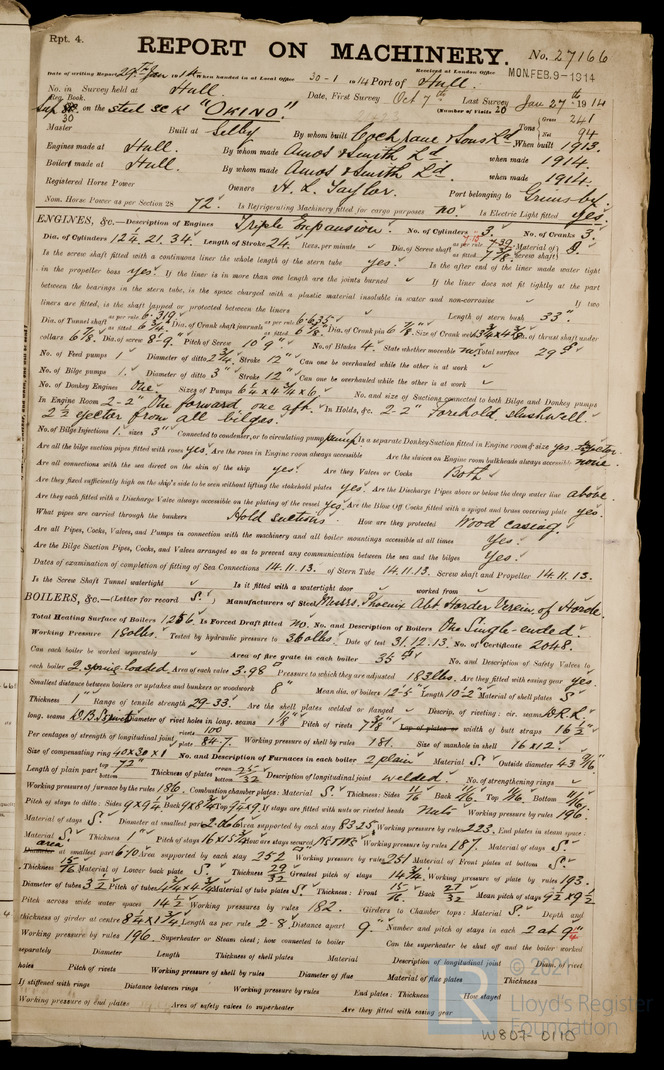 Rpt. 4.
REPORT ON MACHINERY.
No. 27166
Received at London Office
MON. FEB. 9 - 1914
Date of writing Report 29th Jan 1914 When handed in at Local Office 30-1-1914 Port of Hull.
No. in Survey held at Hull. Date, First Survey Oct 7th Last Survey Jan 27th 1914
Reg. Book.
(Number of Visits 20
30 on the steel sc k "OKINO." Tons Gross 241
Net 94
Master Built at Selby By whom built Cochrane & Sons Ld When built 1913.
Engines made at Hull. By whom made Amos & Smith Ld when made 1914.
Boilers made at Hull. By whom made Amos & Smith Ld. when made 1914.
Registered Horse Power Owners H. L. Taylor. Port belonging to Grimsby.
Nom. Horse Power as per Section 28 72. Is Refrigerating Machinery fitted for cargo purposes no. Is Electric Light fitted yes.
ENGINES, &c.—Description of Engines Triple Expansion. No. of Cylinders 3. No. of Cranks 3.
Dia. of Cylinders 12¼. 21. 34. Length of Stroke 24. Revs. per minute Dia. of Screw shaft as per rule 7.39 as fitted 7⅜ Material of screw shaft S.
Is the screw shaft fitted with a continuous liner the whole length of the stern tube yes. Is the after end of the liner made water tight
in the propeller boss yes. If the liner is in more than one length are the joints burned If the liner does not fit tightly at the part
between the bearings in the stern tube, is the space charged with a plastic material insoluble in water and non-corrosive If two
liners are fitted, is the shaft lapped or protected between the liners Length of stern bush 33".
Dia. of Tunnel shaft as per rule 6.319 as fitted 6¾ Dia. of Crank shaft journals as per rule 6.635 as fitted 6⅞ Dia. of Crank pin 6⅞ Size of Crank webs 13¾ x 4⅜ Dia. of thrust shaft under
collars 6⅞ Dia. of screw 8'-9". Pitch of Screw 10'9" No. of Blades 4. State whether moveable no Total surface 29
No. of Feed pumps 1 Diameter of ditto 2¾ Stroke 12" Can one be overhauled while the other is at work
No. of Bilge pumps 1. Diameter of ditto 3" Stroke 12" Can one be overhauled while the other is at work
No. of Donkey Engines One Sizes of Pumps 6½ x 4¾ x 6 No. and size of Suctions connected to both Bilge and Donkey pumps
In Engine Room 2-2" One forward, one aft. In Holds, &c. 2-2" Forehold, slushwell.
2½ ejector from all bilges.
No. of Bilge Injections 1. sizes 3" Connected to condenser, or to circulating pump pump Is a separate Donkey Suction fitted in Engine room & size yes. ejector
Are all the bilge suction pipes fitted with roses yes. Are the roses in Engine room always accessible Are the sluices on Engine room bulkheads always accessible none.
Are all connections with the sea direct on the skin of the ship yes. Are they Valves or Cocks Both
Are they fixed sufficiently high on the ship's side to be seen without lifting the stokehold plates yes. Are the Discharge Pipes above or below the deep water line above.
Are they each fitted with a Discharge Valve always accessible on the plating of the vessel yes. Are the Blow Off Cocks fitted with a spigot and brass covering plate yes.
What pipes are carried through the bunkers Hold suctions. How are they protected Wood casing.
Are all Pipes, Cocks, Valves, and Pumps in connection with the machinery and all boiler mountings accessible at all times Yes.
Are the Bilge Suction Pipes, Cocks, and Valves arranged so as to prevent any communication between the sea and the bilges Yes.
Dates of examination of completion of fitting of Sea Connections 14.11.13. of Stern Tube 14.11.13. Screw shaft and Propeller 14.11.13.
Is the Screw Shaft Tunnel watertight Is it fitted with a watertight door worked from
BOILERS, &c.—(Letter for record S.) Manufacturers of Steel Messrs. Phoenix Abt Horder Verein, of Horde
Total Heating Surface of Boilers 1256. Is Forced Draft fitted no. No. and Description of Boilers One Single-ended.
Working Pressure 180lbs. Tested by hydraulic pressure to 360lbs. Date of test 31.12.13. No. of Certificate 2048.
Can each boiler be worked separately Area of fire grate in each boiler 35 No. and Description of Safety Valves to
each boiler 2. spring-loaded. Area of each valve 3.98" Pressure to which they are adjusted 183lbs. Are they fitted with easing gear yes.
Smallest distance between boilers or uptakes and bunkers or woodwork 8" Mean dia. of boilers 12-5 Length 10-2" Material of shell plates S
Thickness 1" Range of tensile strength 29-33. Are the shell plates welded or flanged Descrip. of riveting: cir. seams D.R.R.
long. seams Diameter of rivet holes in long. seams 1⅛" Pitch of rivets 7⅞" Lap of plates or width of butt straps 16½"
Per centages of strength of longitudinal joint rivets 100 plate 84.7. Working pressure of shell by rules 181. Size of manhole in shell 16 x 12"
Size of compensating ring 40x30x1 No. and Description of Furnaces in each boiler 2 plain Material S. Outside diameter 43
Length of plain part top 72" bottom Thickness of plates crown bottom 25/32 Description of longitudinal joint welded. No. of strengthening rings
Working pressure of furnace by the rules 186. Combustion chamber plates: Material S. Thickness: Sides 11/16 Back 11/16. Top 11/16. Bottom 11/16
Pitch of stays to ditto: Sides 9x9¼. Back 9x8¾ Top 9¼x9. If stays are fitted with nuts or riveted heads nuts. Working pressure by rules 196.
Material of stays S. Diameter at smallest part 2.06 Area supported by each stay 83.25 Working pressure by rules 223. End plates in steam space:
Material S. Thickness 1" Pitch of stays 16x15¾ How are stays secured Working pressure by rules 187. Material of stays S.
area
Diameter at smallest part 6.70 Area supported by each stay 252 Working pressure by rules 251 Material of Front plates at bottom S.
Thickness 15/16 Material of Lower back plate S. Thickness 29/32 Greatest pitch of stays 14¾ Working pressure of plate by rules 193.
Diameter of tubes 3½ Pitch of tubes 4¾x4¾ Material of tube plates S. Thickness: Front 15/16 Back 27/32 Mean pitch of stays 9½x9½
Pitch across wide water spaces 14½ Working pressures by rules 182. Girders to Chamber tops: Material S. Depth and
thickness of girder at centre 8¼x1¾ Length as per rule 2-8. Distance apart 9 Number and pitch of stays in each 2 at 9"
Working pressure by rules 196 Superheater or Steam chest; how connected to boiler Can the superheater be shut off and the boiler worked
separately Diameter Length Thickness of shell plates Material Description of longitudinal joint Diam. of rivet
holes Pitch of rivets Working pressure of shell by rules Diameter of flue Material of flue plates Thickness
If stiffened with rings Distance between rings Working pressure by rules End plates: Thickness How stayed
Working pressure of end plates Area of safety valves to superheater Are they fitted with easing gear
© 2021
Lloyd's Register
Foundation
W807-0110